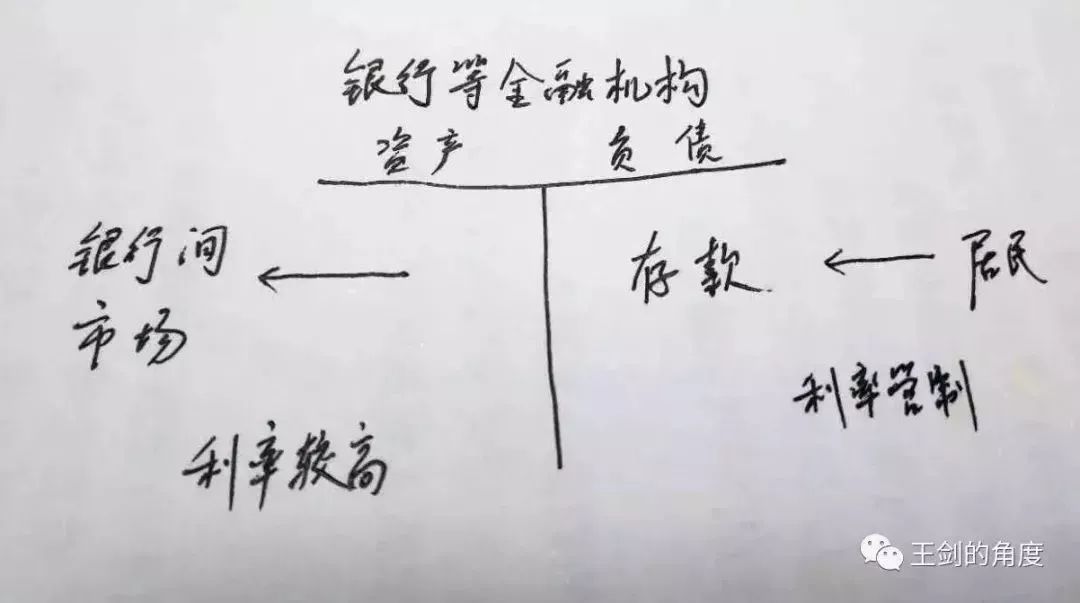 银行等金融机构
资产 负债
银行间
市场
存款
居民
利率管制
利率较高
王剑的角度